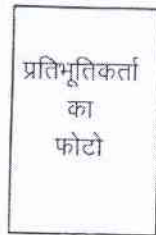 प्रतिभूतिकर्ता
का
फोटो